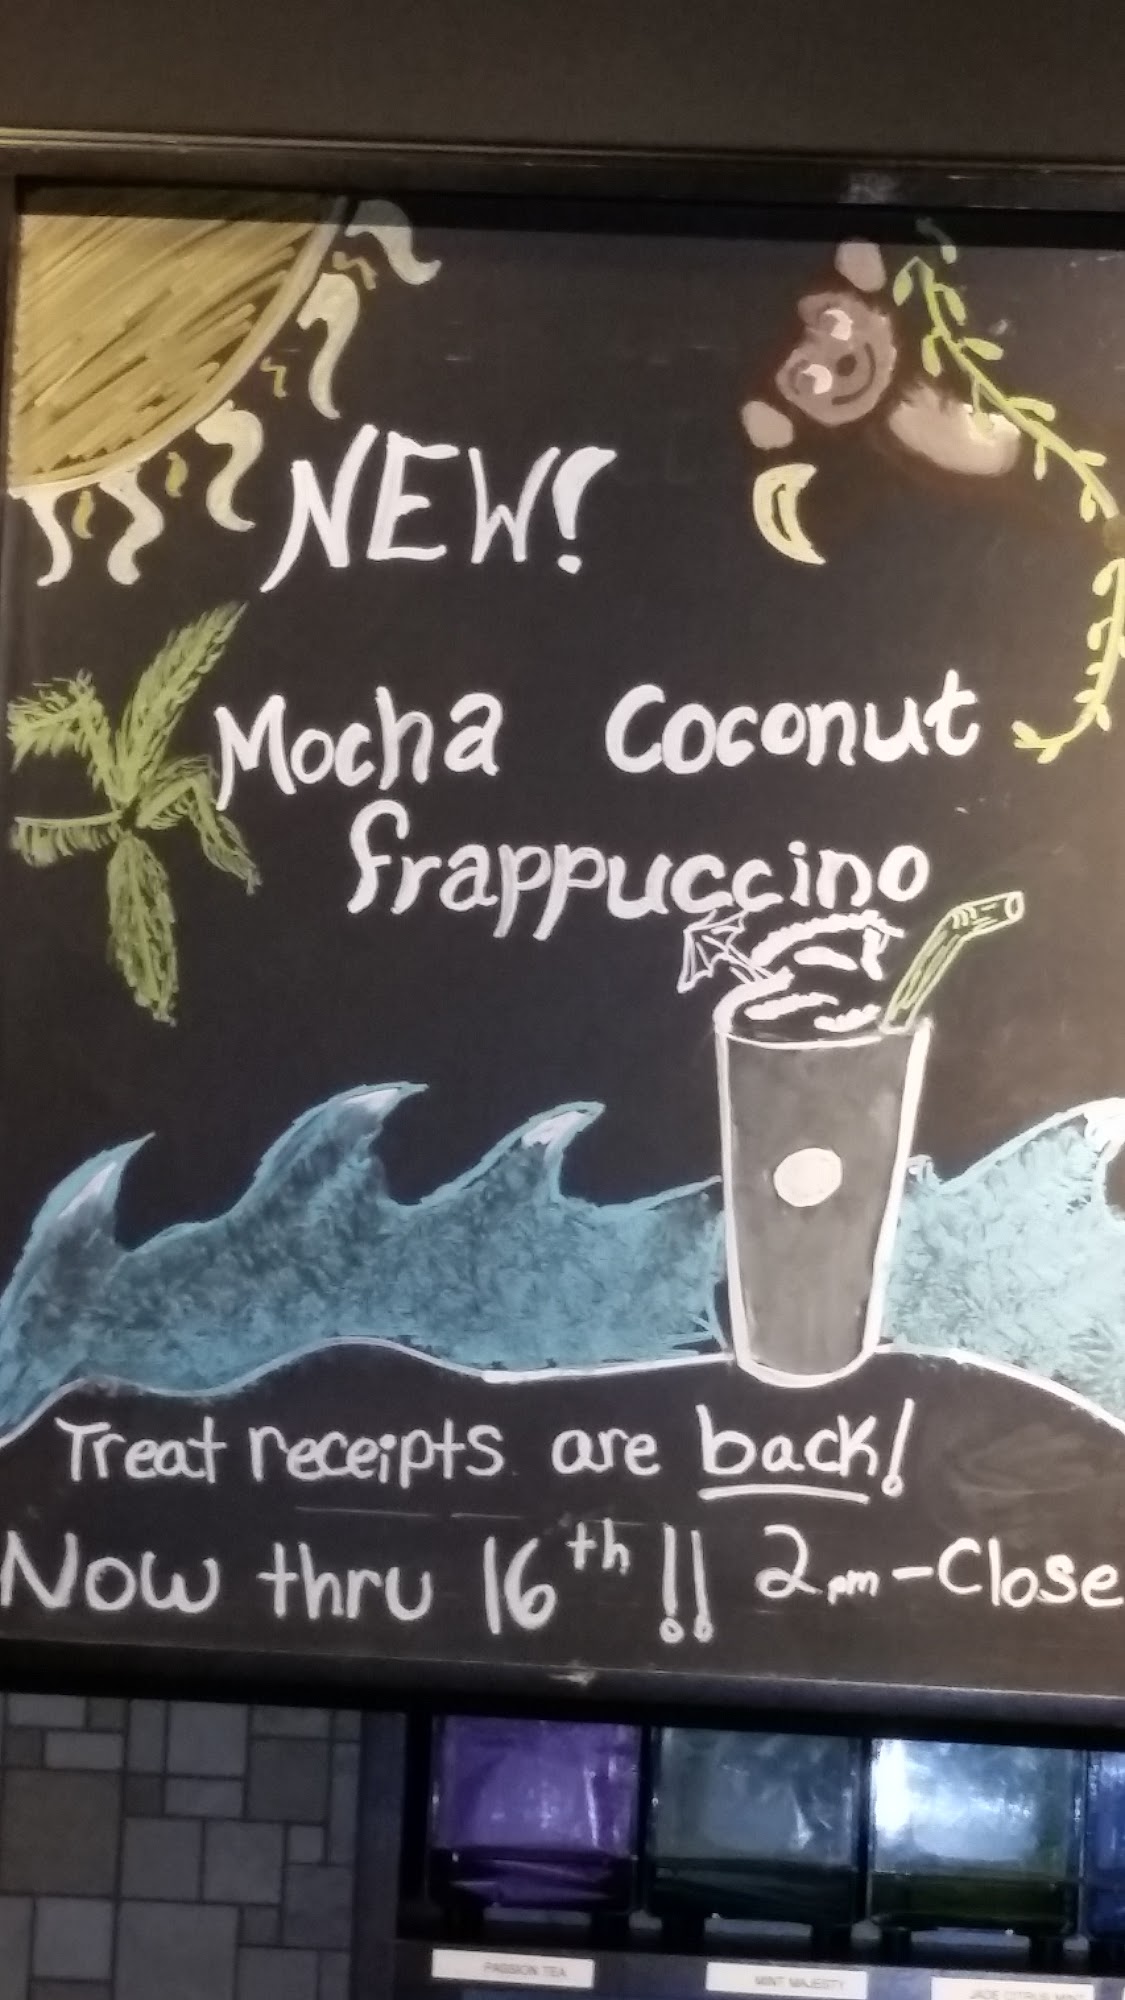 NEW!
Mocha Coconut
frappuccino
Treat receipts are back!
Now thru 16th!! 2pm-Close
PASSION TEA
MINT MAJESTY
JADE CITRUS MINT